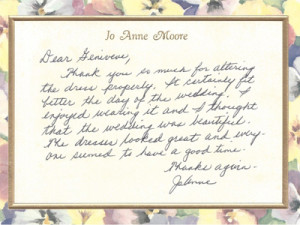 Jo Anne Moore
Dear Genivieve,
Thank you so much for altering
the dress properly. It certainly fit
better the day of the wedding. I
enjoyed wearing it and I thought
that the wedding was beautiful.
The dresses looked great and every-
one seemed to have a good time.
Thanks again-
JoAnne